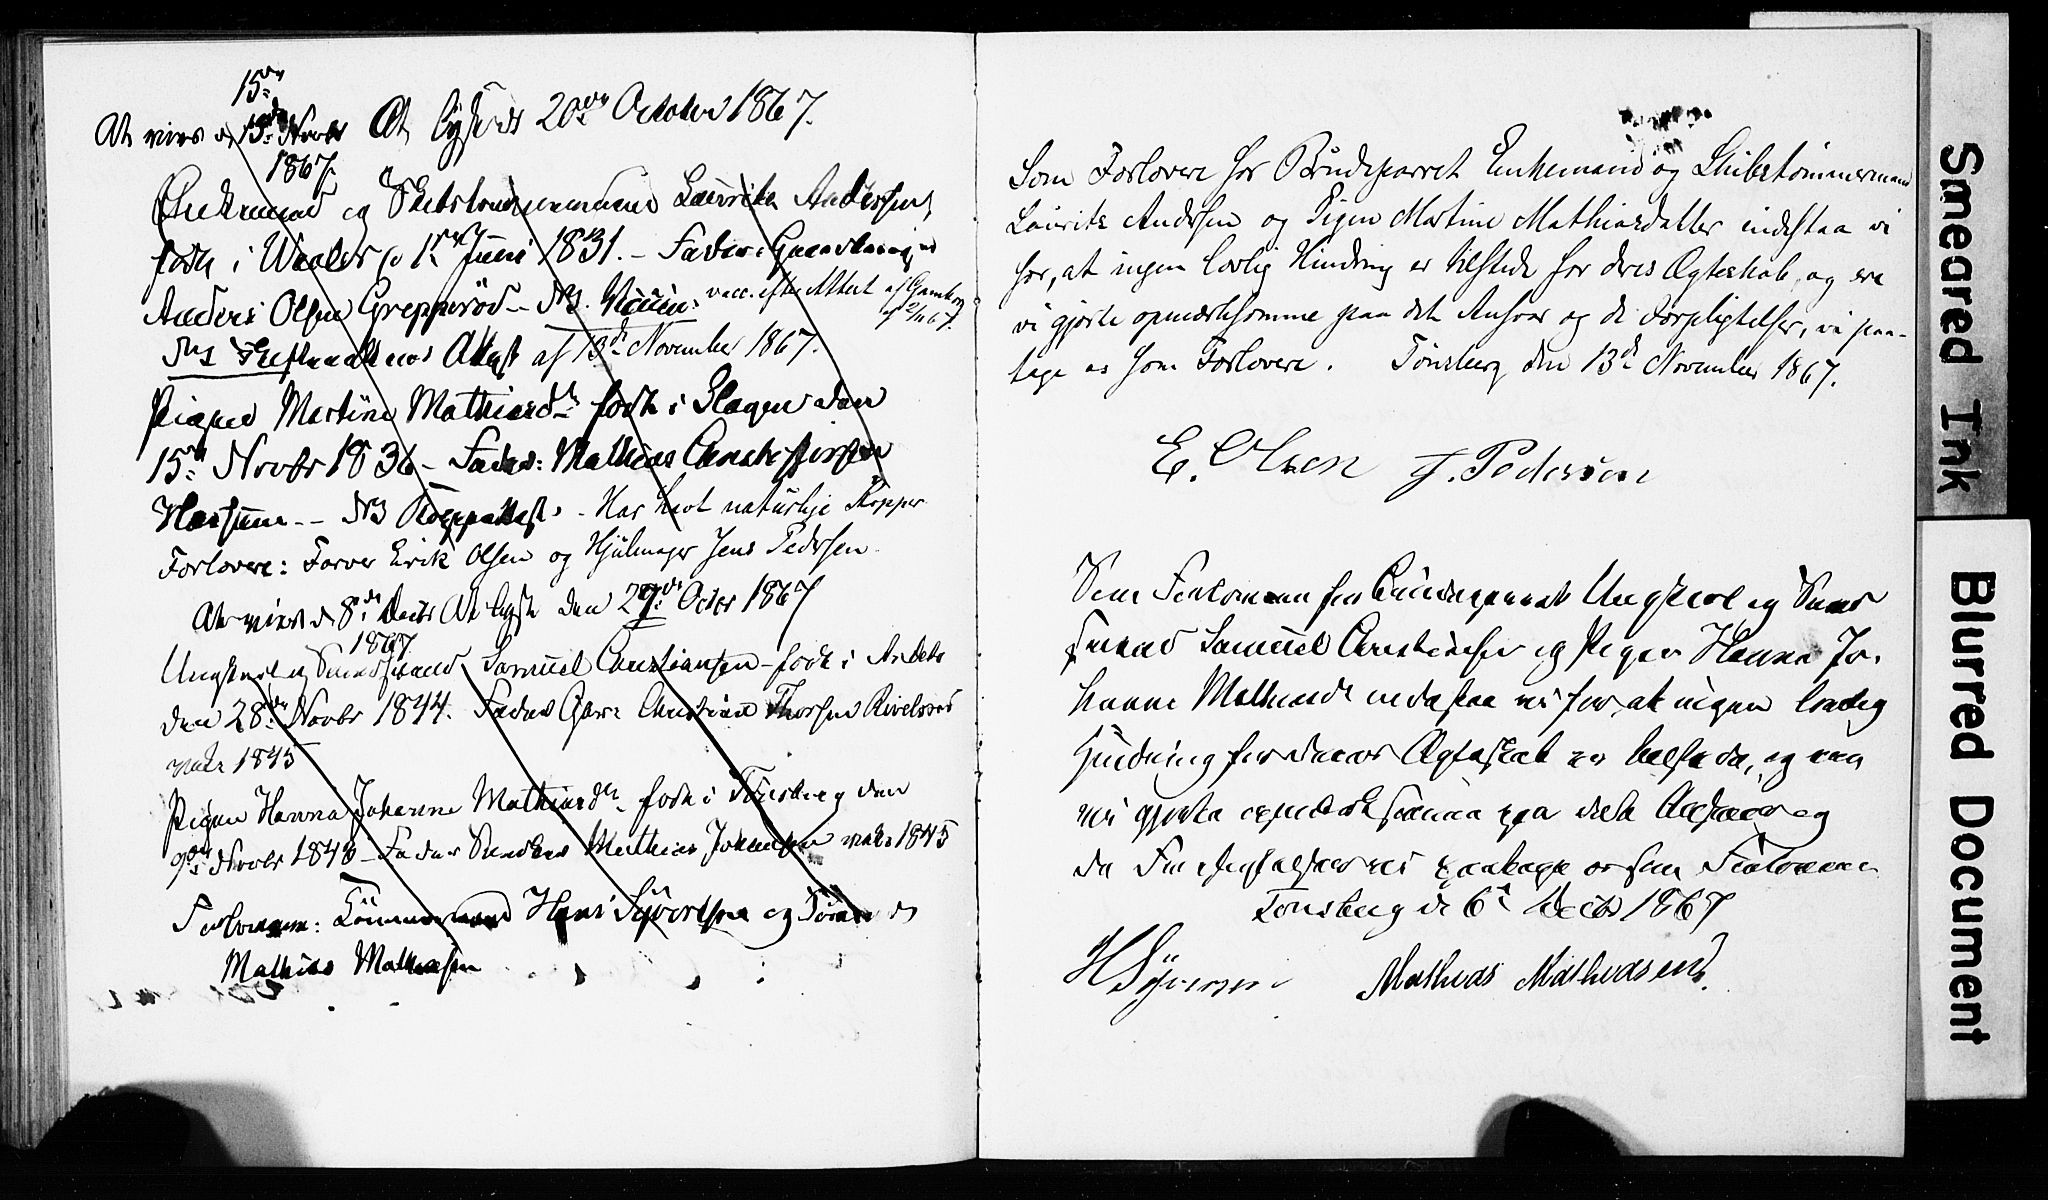 15de
At vies d 15de Novbr At lyses 20de October 1867.
1867
Enkemand og Skibstømmermand Laurits Andersen,
født i Waaler 1ste Juni 1831. – Fader: Gaardbruger
Anders Olsen Grepperød – NB. vacc. efter Attest af
NB Attest af 13de November 1867.
Pigen Martine Mathiasdr født i Slagen den
15de Novbr 1836 – Fader: Mathias Christophersen
NB Koppeattest. – Har havt naturlige Kopper
Forlovere: Farver Erik Olsen og Hjulmager Jens Pedersen.
At vies d 8de Decbr At lyses den 27de Octbr 1867
1867
Ungkarl og Samuel Christiansen – født i Andebu
den 28de Novbr 1844. Fader Christian Thorsen
vakc 1845
Pigen Hanna Johanne Mathiasdr født i Tönsberg den
9de Novbr 1843 – Fader Mathias Johansen vakc 1845
Forlovere: Tömmermand Hans Syvertsen og
Mathias Mathiasen
Som Forlovere for Brudeparret Enkemand og Skibstømmermand
Laurits Andersen og Pigen Martine Mathiasdatter indestaa vi
for, at ingen lovlig Hindring er tilstede for deres Ægteskab, og ere
vi gjorte opmærksomme paa det Ansvar og de Forpligtelser, vi paa-
tage os som Forlovere. Tønsberg den 13de November 1867.
E. Olsen J. Pedersen
Som Forlovere for Brudeparret Ungkarl og Smed
svend Samuel Christiansen og Pigen Hanna Jo-
hanne Mathiasdr indestaa vi for, at ingen lovlig
Hindring for deres Ægteskab er tilstede, og ere
vi gjorte opmærksomme paa det Ansvar og
de Forpligtelser vi paatage os som Forlovere
Tønsberg d 6te Decbr 1867
H Syversen Mathias Mathiasen.
Smeared Ink
Blurred Document